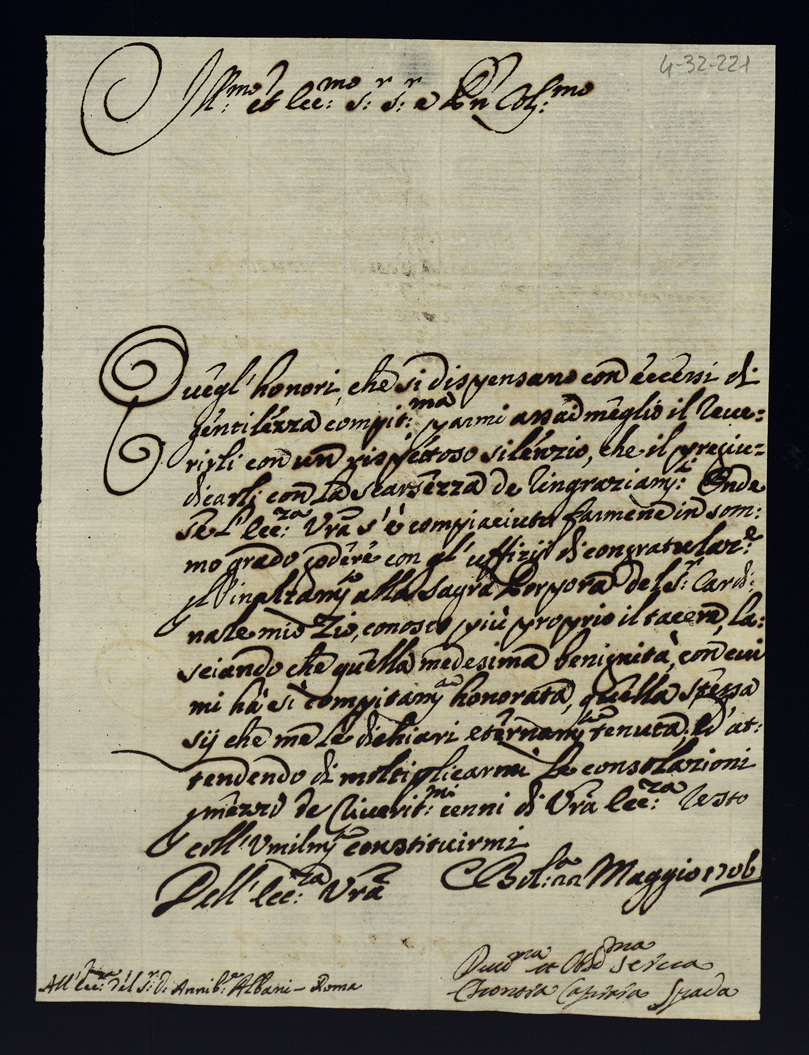 4-32-221
Ill:mo et Ecc:mo S:r S:r e P̃ñ Col:mo
Quegl'honori, che si dispensano con eccessi di
gentilezza compit:ma parmi assai meglio il reue-
rirli con un rispettoso silenzio, che il pregiu-
dicarli con la scarsezza de ringraziam:ti Onde
se l'Ecc:za Vrã s'è compiaciuta farmene in som-
mo grado godere con gl'uffizij di congratulaz:e
p l'inalzam:to alla Sagra Porpora del S:r Cardi-
nale mio Zio, conosco più proprio il tacere, la-
sciando che quella medesima benignità, con cui
mi hà sì compitam:te honorata, quella stessa
sij che me le dichiari eternam:te tenuta, ed at-
tendendo di moltiplicarmi le consolazioni
p mezzo de riuerit:mi cenni di Vrã Ecc:za resto
coll'Vmilm:te constituirmi
Dell'Ecc:za Vrã
Bol:a 22 Maggio 1706
All'Ecc:za del S:r D: Annib:e Albani - Roma
Deuo:ma et Obb:ma Serua
Eleonora Caprara Spada